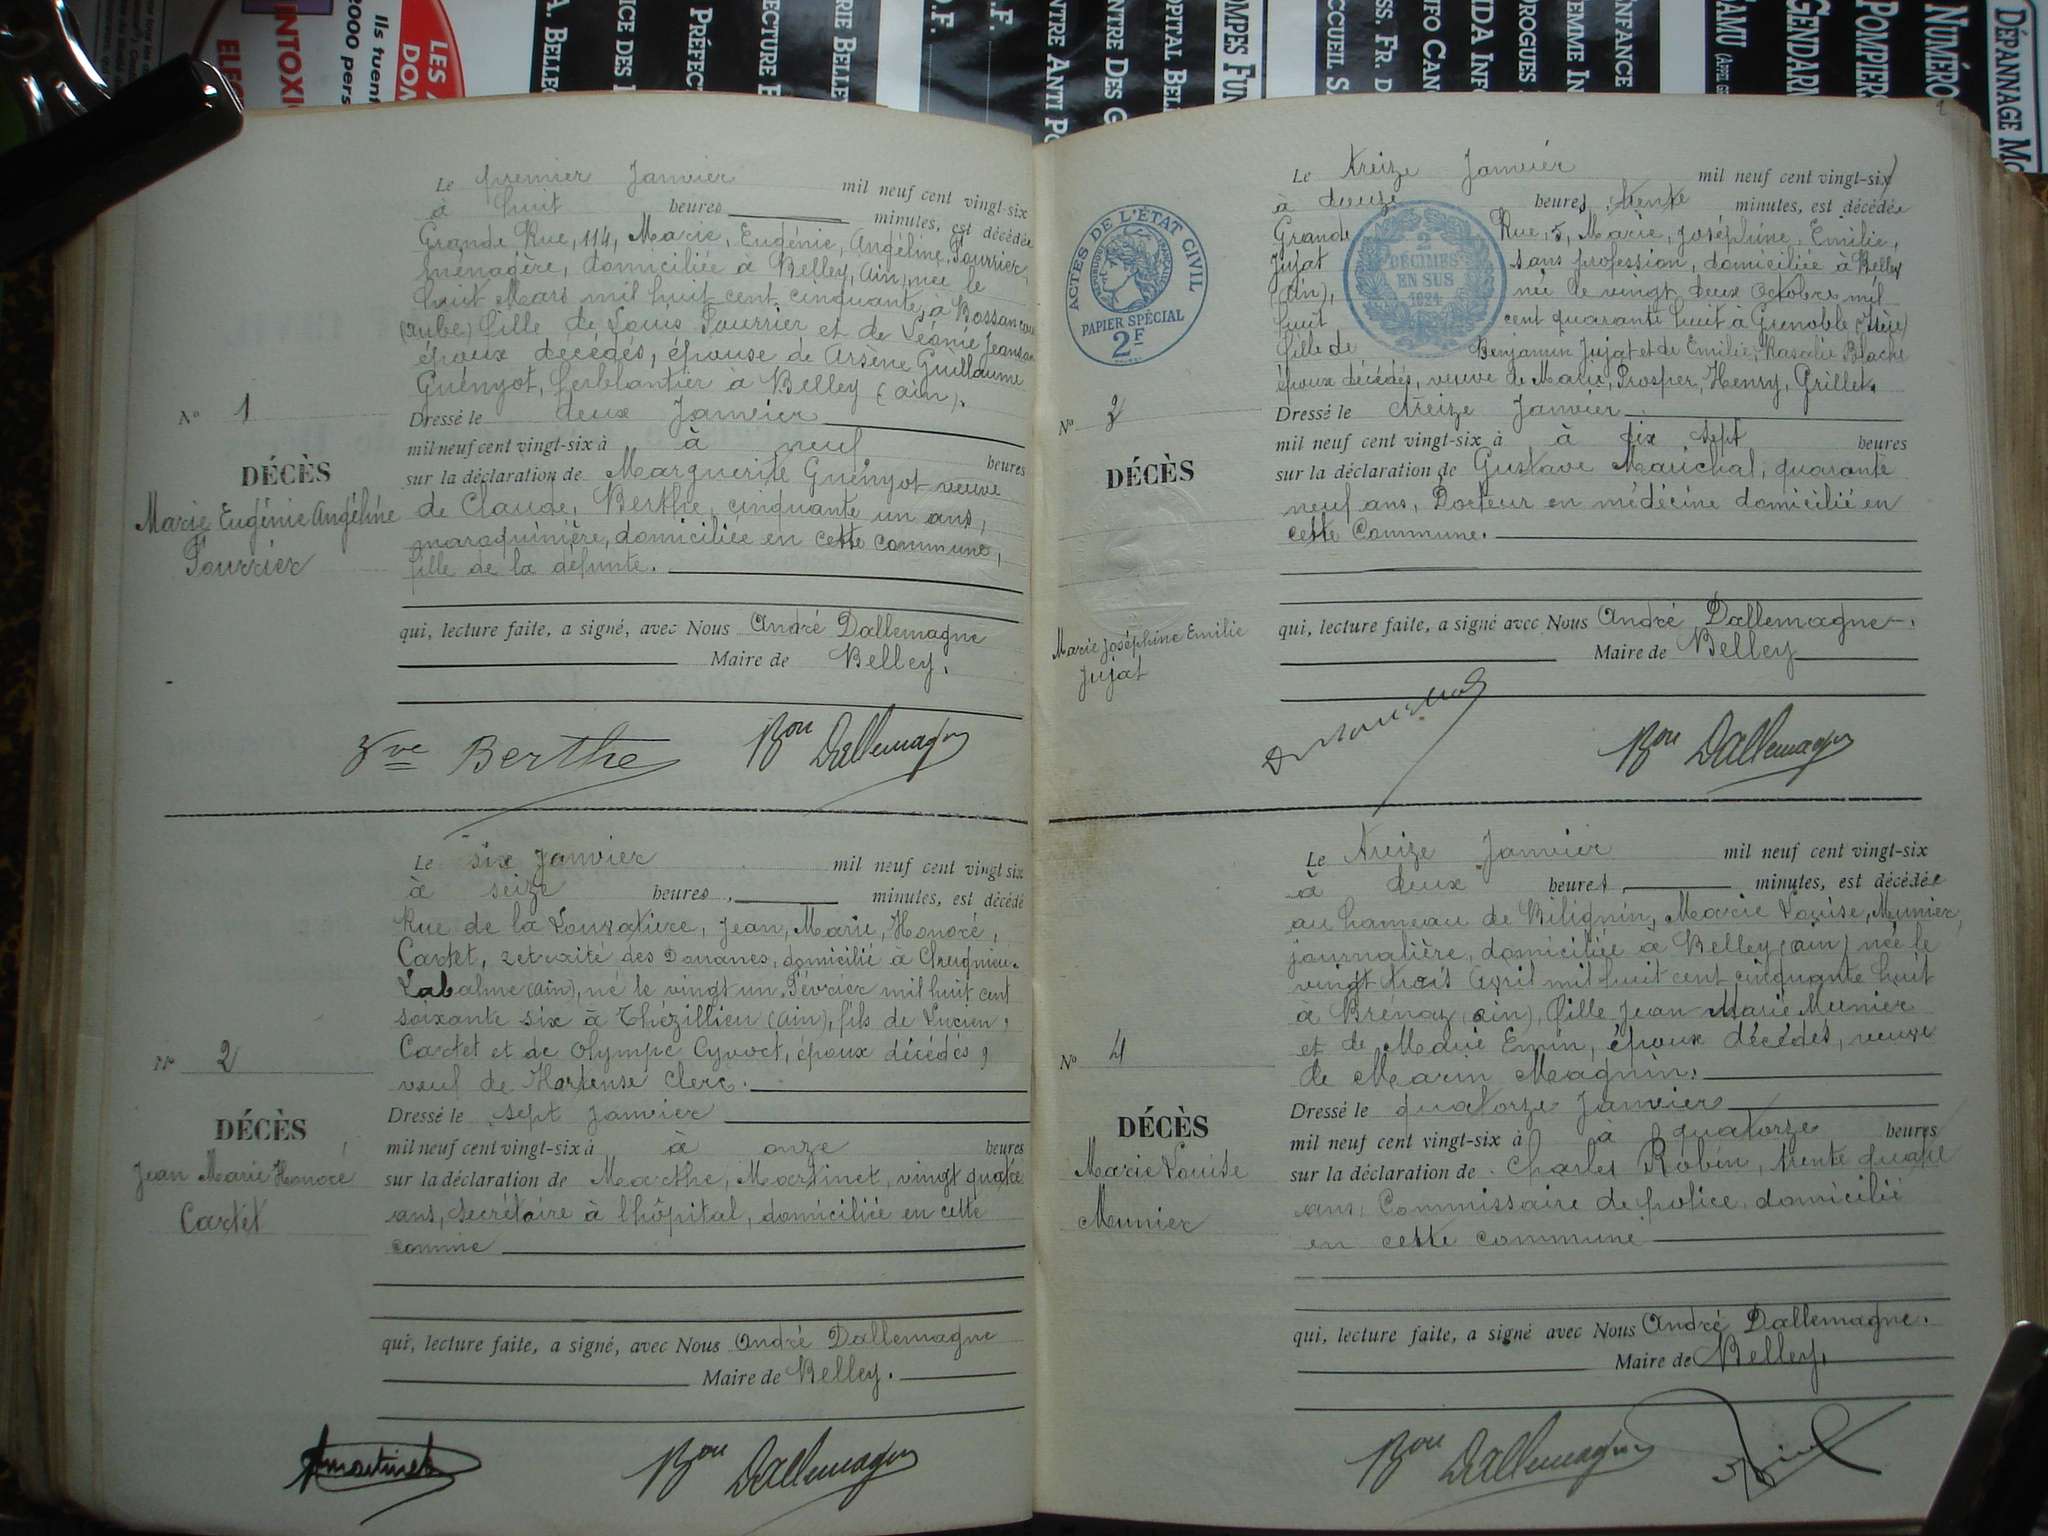 LES
DO
Ils tuent
2000 pers
INTOXI
ELEC
A. BELLE
ICE DES
PRÉFECT
ECTURE
RIE BELLEY
NTRE ANTI PO
NTRE DES G
OPITAL BEL
OMPES FUN
ACCUEIL S.
SS. FR. D
NFO CAN
IDA INF
DROGUES
EMME IN
NFANCE
SAMU (APPEL
GENDARM
POMPIERS
NUMÉRO
DÉPANNAGE
Le premier Janvier mil neuf cent vingt-six
à huit heures minutes, est décédée
Grande Rue, 114, Marie, Eugénie, Angéline, Fourrier,
ménagère, domiciliée à Belley, (Ain), née le
huit Mars mil huit cent cinquante, à Bossancourt
(Aube) fille de Louis Fourrier et de Léonie Jeanson
époux décédés, épouse de Arsène Guillaume
Guényot, ferblantier à Belley (Ain).
N° 1
DÉCÈS
Marie Eugénie Angéline
Fourrier
Dressé le deux Janvier
mil neuf cent vingt-six à à neuf heures
sur la déclaration de Marguerite Guényot veuve
de Claude, Berthe, cinquante un ans,
maroquinière, domiciliée en cette commune,
fille de la défunte.
qui, lecture faite, a signé, avec Nous André Dallemagne
Maire de Belley.
Vve Berthe Bon Dallemagne
Le six Janvier mil neuf cent vingt-six
à seize heures, minutes, est décédé
Rue de la Louvatière, Jean, Marie, Honoré,
Cartet, retraité des Douanes, domicilié à Cheignieu-
Labalme (Ain), né le vingt un Février mil huit cent
soixante six à Thézillieu (Ain), fils de Lucien,
Cartet et de Olympe Cyvoct, époux décédés,
veuf de Hortense Clerc.
N° 2
DÉCÈS
Jean Marie Honoré
Cartet
Dressé le sept Janvier
mil neuf cent vingt-six à à onze heures
sur la déclaration de Marthe, Martinet, vingt quatre
ans, secrétaire à l'hôpital, domiciliée en cette
comme
qui, lecture faite, a signé, avec Nous André Dallemagne
Maire de Belley.
Martinet Bon Dallemagne
ACTES DE L'ÉTAT CIVIL
PAPIER SPÉCIAL
2F
2
DÉCIMES
EN SUS
Le treize Janvier mil neuf cent vingt-six
à douze heures trente minutes, est décédée
Grande Rue, 5, Marie, Joséphine, Emilie,
Jujat sans profession, domiciliée à Belley
(Ain), née le vingt deux Octobre mil
huit cent quarante huit à Grenoble (Isère)
fille de Benjamin Jujat et de Emilie, Rosalie Blache
époux décédés, veuve de Marie, Prosper, Henry, Grillet.
N° 3
DÉCÈS
Marie Joséphine Emilie
Jujat
Dressé le treize Janvier
mil neuf cent vingt-six à à dix sept heures
sur la déclaration de Gustave Marichal, quarante
neuf ans, Docteur en médécine domicilié en
cette Commune.
qui, lecture faite, a signé avec Nous André Dallemagne
Maire de Belley
Bon Dallemagne
Le treize Janvier mil neuf cent vingt-six
à deux heures, minutes, est décédée
au hameau de Bilignin, Marie Louise, Munier,
journalière, domiciliée à Belley (Ain) née le
vingt trois Avril mil huit cent cinquante huit
à Brénaz (Ain), fille Jean Marie Munier
et de Marie Emin, époux décédés, veuve
de Marin Magnin.
N° 4
DÉCÈS
Marie Louise
Munier
Dressé le quatorze Janvier
mil neuf cent vingt-six à à quatorze heures
sur la déclaration de Charles Robin, trente quatre
ans, Commissaire de police, domicilié
en cette commune
qui, lecture faite, a signé avec Nous André Dallemagne.
Maire de Belley.
Bon Dallemagne